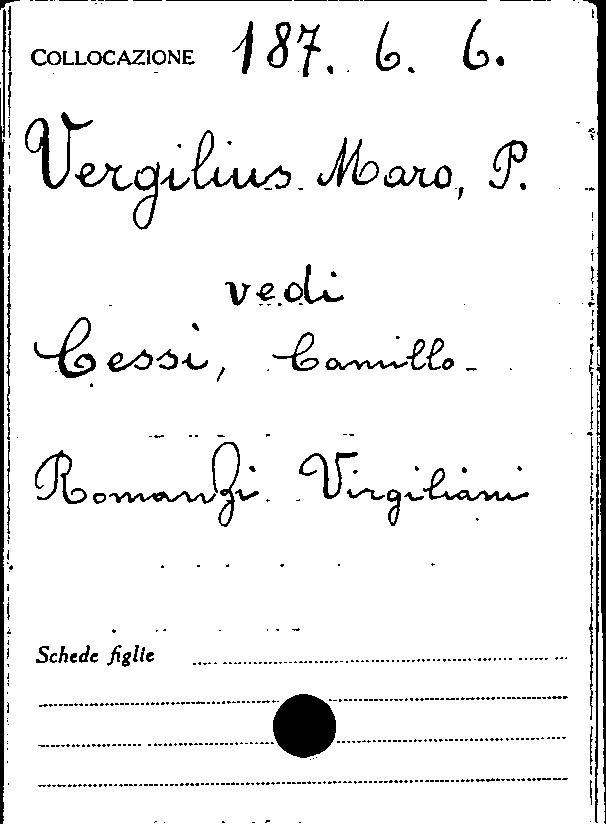 COLLOCAZIONE 187. 6. 6.
Vergilius Maro, P.
vedi
Cessi, Camillo
Romanzi Virgiliani
Schede figlie